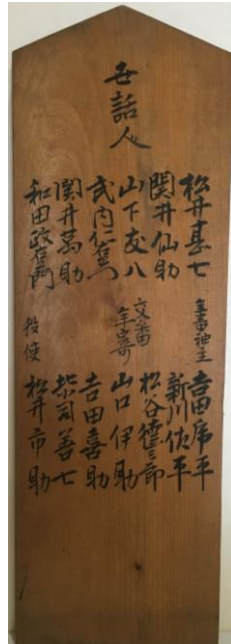 世話人
松井甚七
関井仙助
山下友八
武内仁萬
関井萬助
和田政右衛門
年番神主 吉田席平
新川佐平
松谷徳三郎
文番年寄 山口伊助
吉田喜助
柴司善七
役使 松井市助